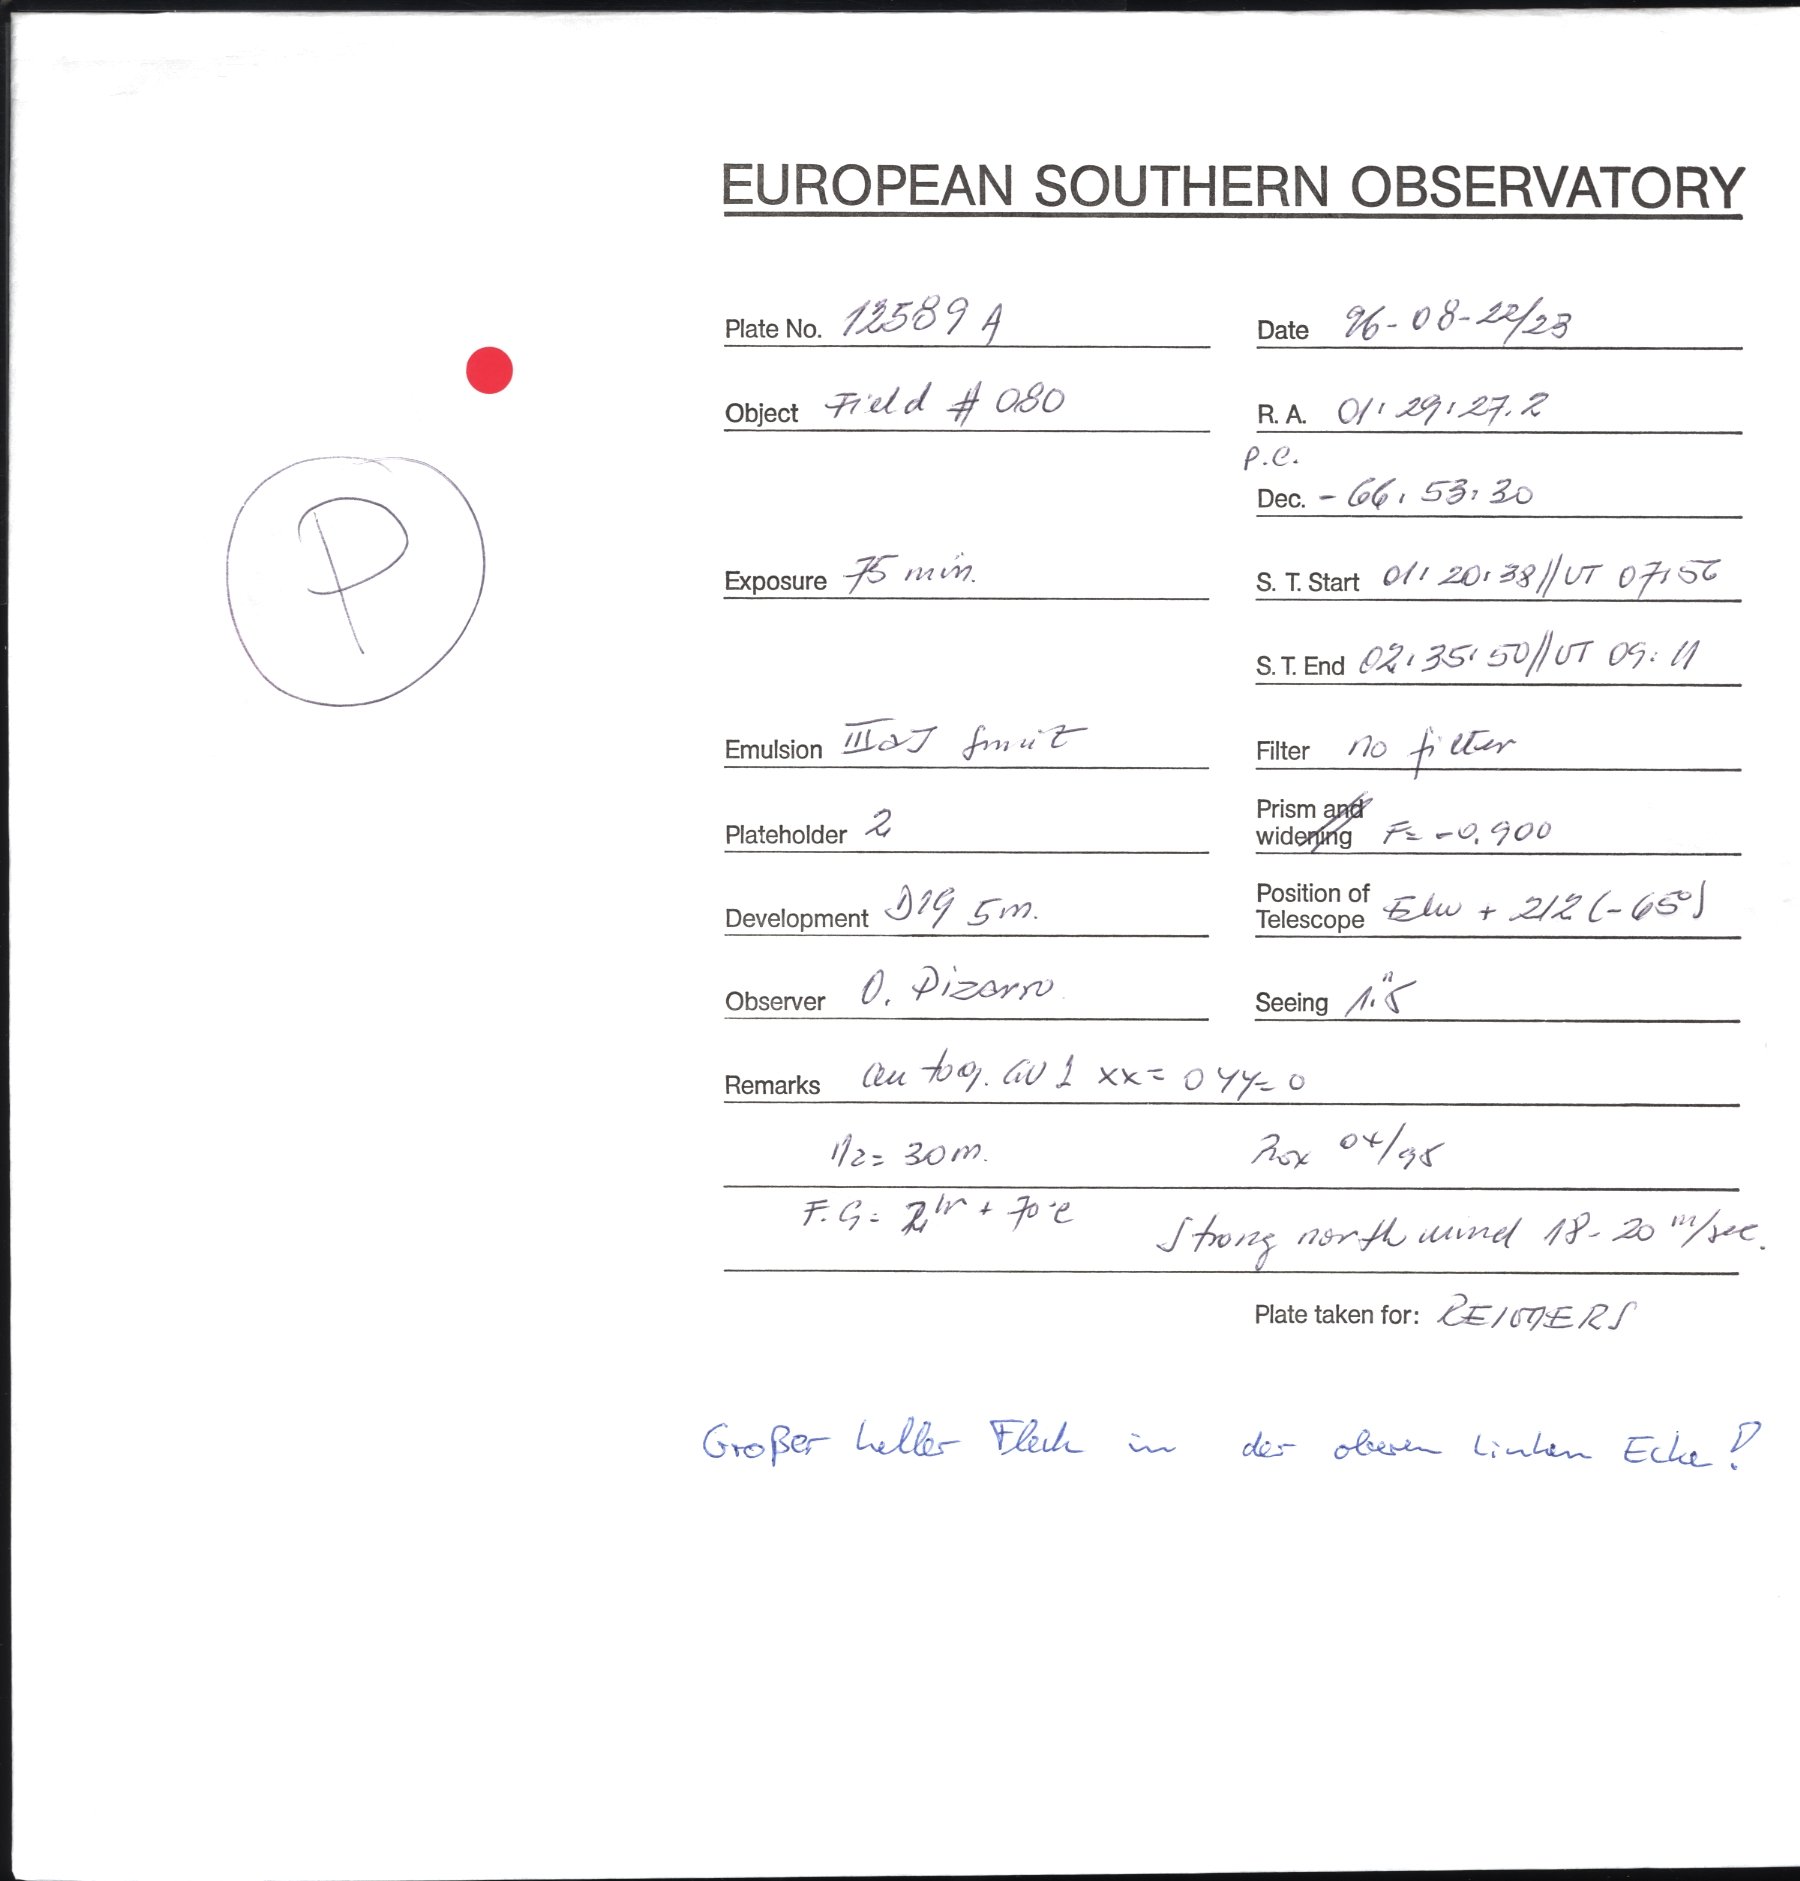 EUROPEAN SOUTHERN OBSERVATORY
Plate No. 12589 A Date 96-08-22/23
Object Field # 080 R. A. 01:29:27.2
P
P.C.
Dec. -66:53:30
Exposure 75 min. S. T. Start 01:20:38//UT 07:56
S. T. End 02:35:50//UT 09:11
Emulsion IIIaJ Filter no filter
Plateholder 2 Prism and widening F= -0.900
Development D19 5m. Position of Telescope + 212 (-65°)
Observer O. Pizarro Seeing 1."5
Remarks xx= 0 yy= 0
N2= 30m.
F.G= + 70°C Strong north wind 18-20 m/sec.
Plate taken for: REIMERS
Großer heller Fleck in der oberen linken Ecke!